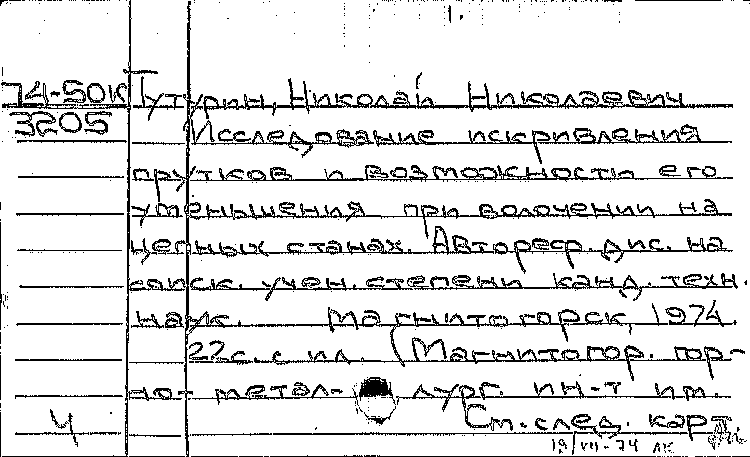 1.
74-50К Тутурин, Николай Николаевич
3205 Исследование искривления
прутков и возможности его
уменьшения при волочении на
цепных станах. Автореф. дис. на
соиск. учен. степени канд. техн.
наук. Магнитогорск, 1974.
22 с. с ил. (Магнитогор. гор-
но-метал- лург. ин-т им.
Ч См. след. карт.
19/VII-74 АК